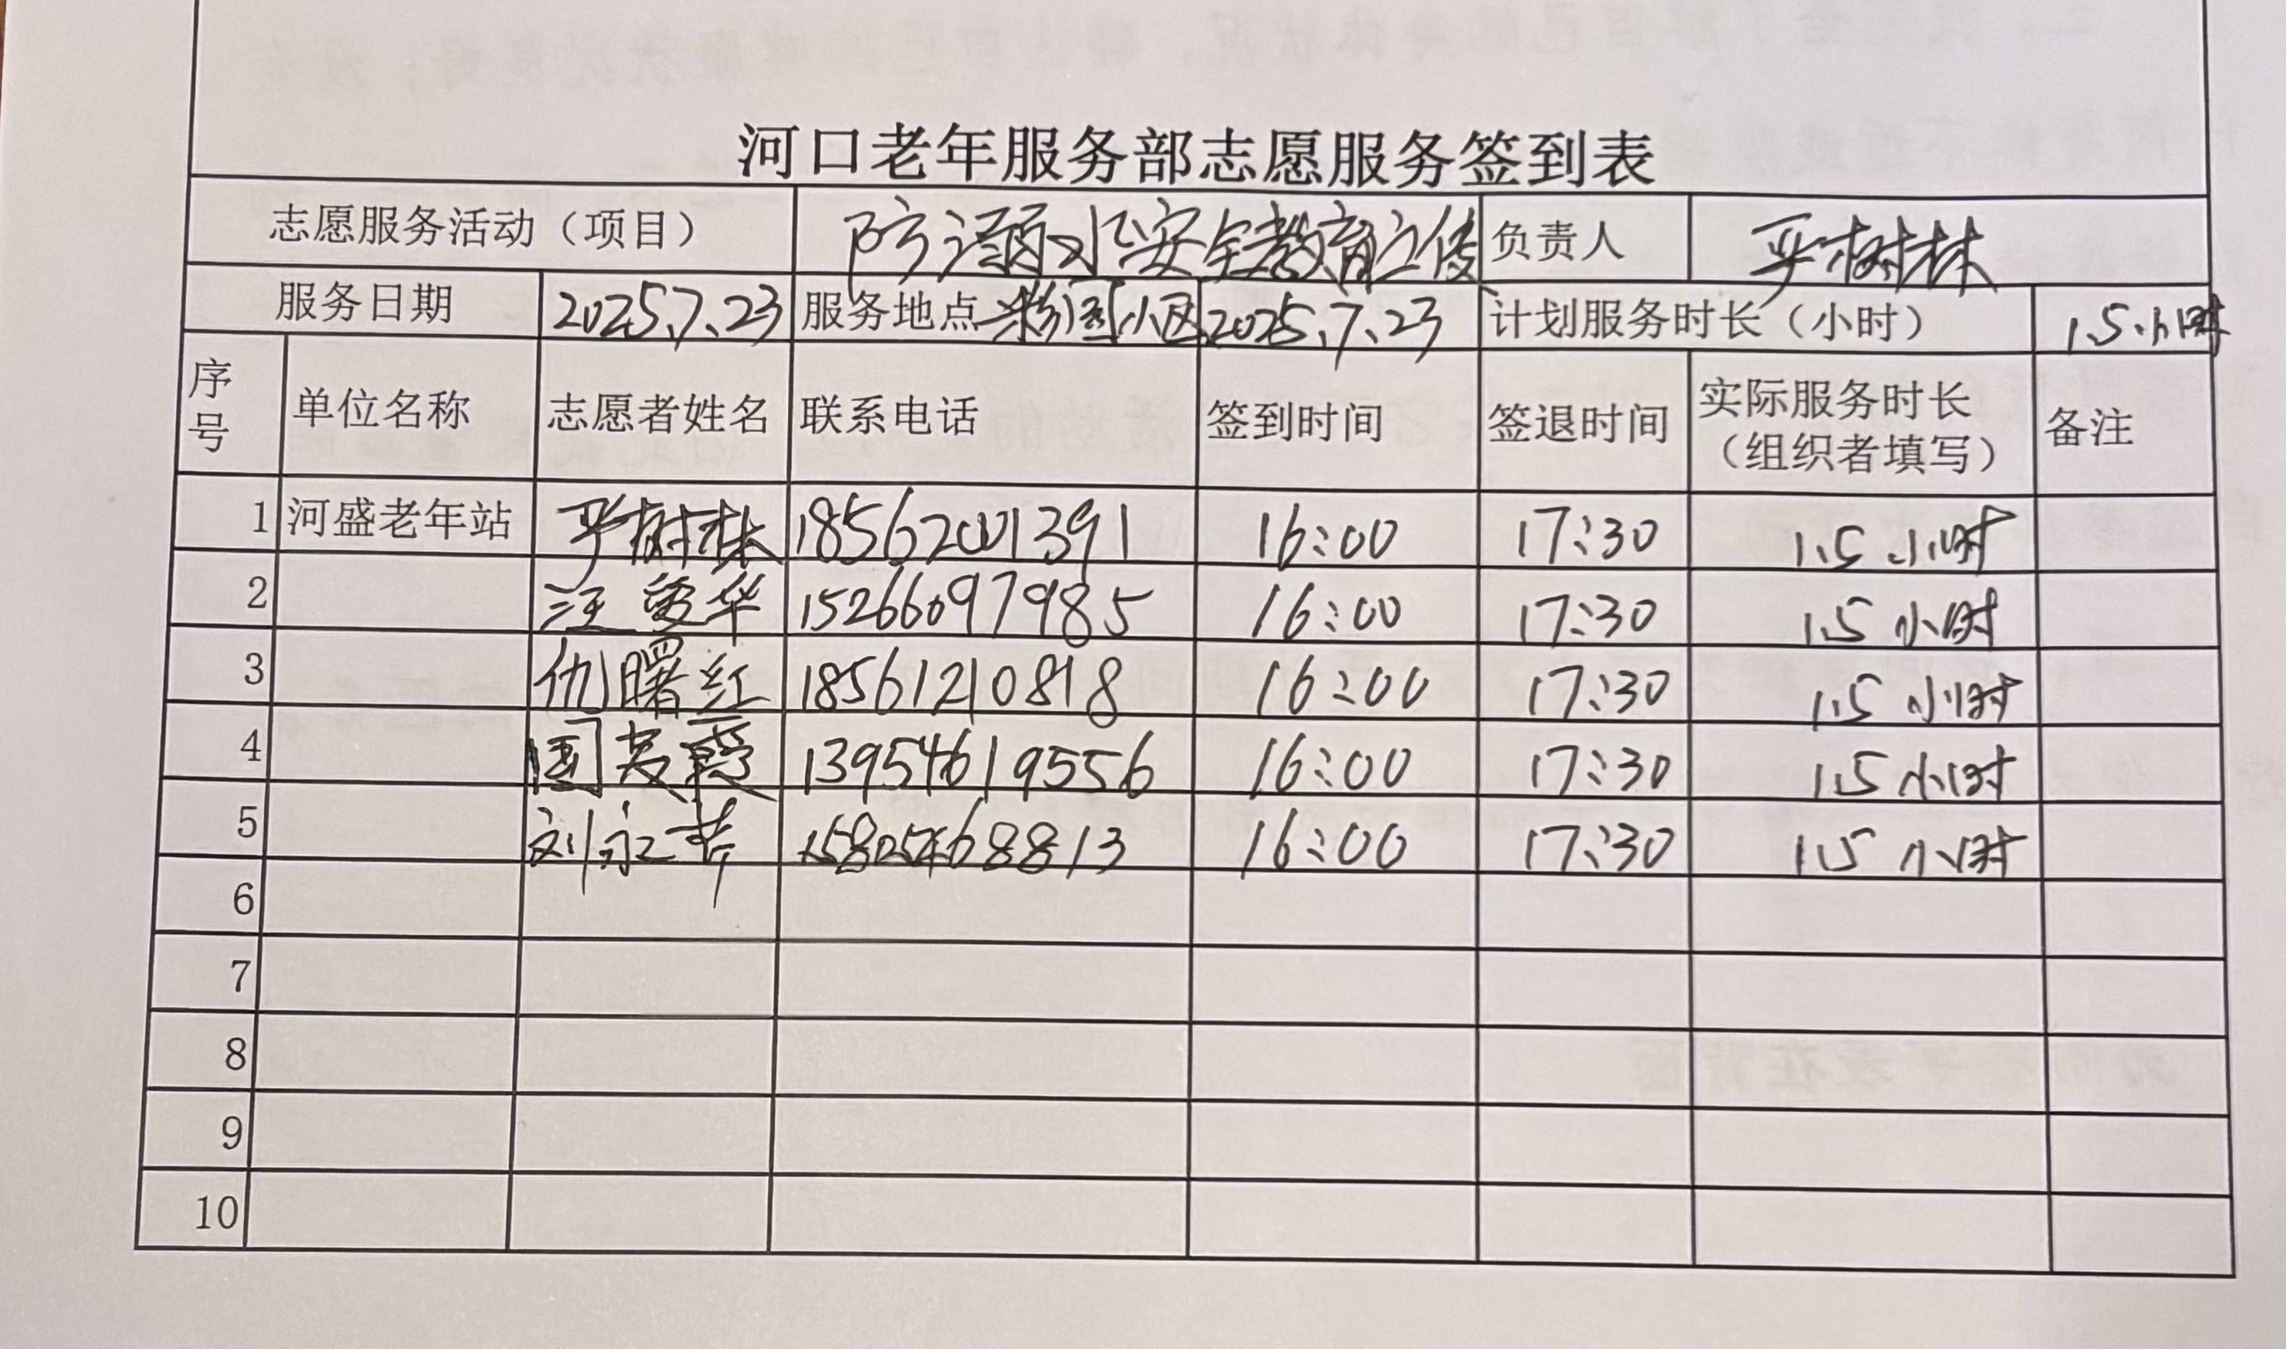 河口老年服务部志愿服务签到表
志愿服务活动（项目） 防溺水安全教育宣传 负责人 平树林
服务日期 2025.7.23 服务地点 小区 2025.7.23 计划服务时长（小时） 1.5小时
序号 单位名称 志愿者姓名 联系电话 签到时间 签退时间 实际服务时长（组织者填写） 备注
1 河盛老年站 平树林 18562001391 16:00 17:30 1.5小时
2 汪爱华 15266097985 16:00 17:30 1.5小时
3 仇曙红 18561210818 16:00 17:30 1.5小时
4 国英霞 13954619556 16:00 17:30 1.5小时
5 刘永芹 15805468813 16:00 17:30 1.5小时
6
7
8
9
10